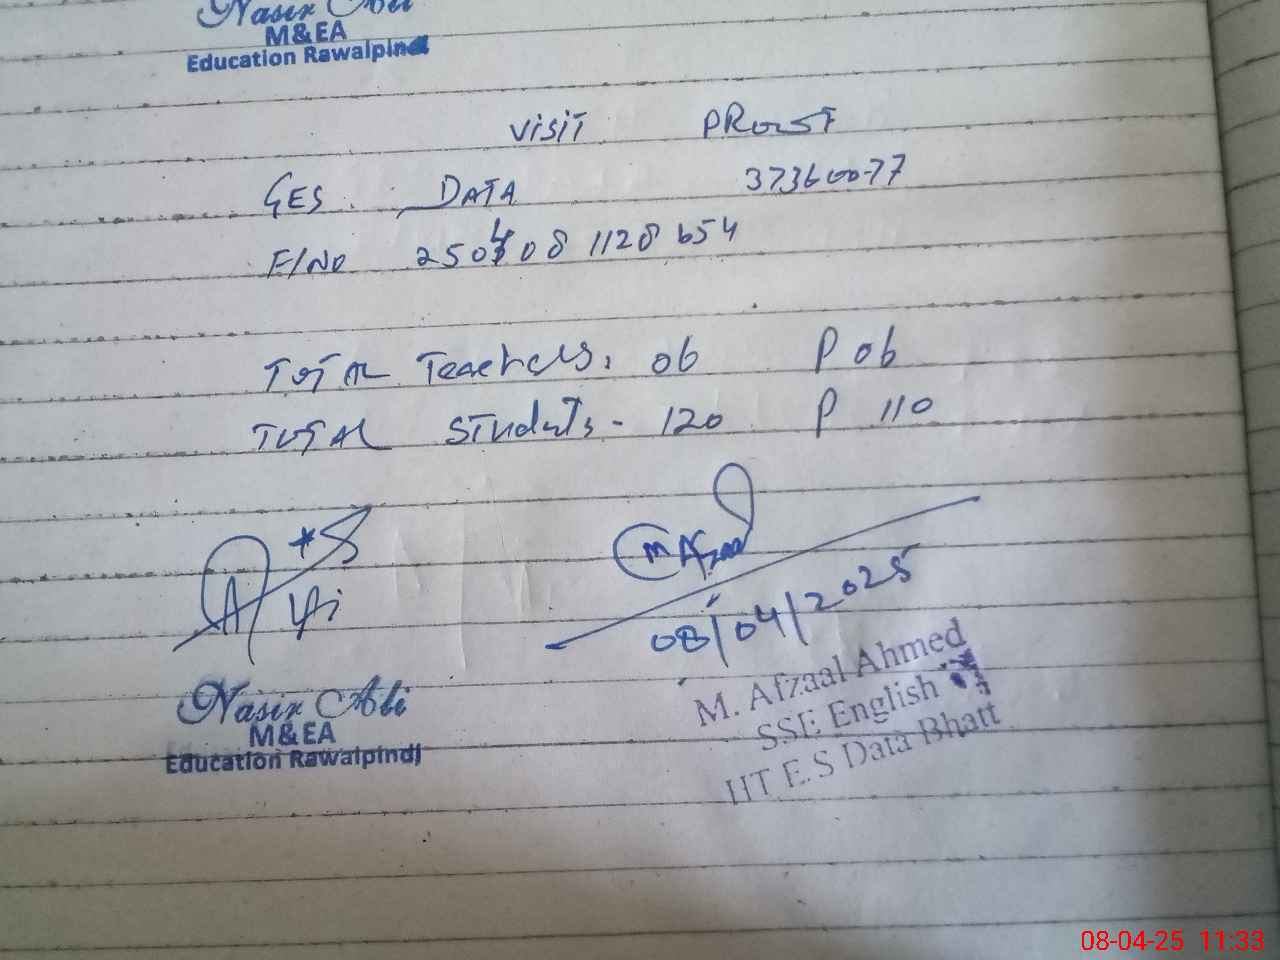 Nasir Ali
M&EA
Education Rawalpindi
VISIT PROOF
GES. DATA 37360077
F/NO 250408 1128 654
TOTAL Teachers. 06 P 06
TOTAL Students- 120 P 110
M Afzaal
08/04/2025
Nasir Ali
M&EA
Education Rawalpindi
M. Afzaal Ahmed
SSE English
E.S Data Bhatt
08-04-25 11:33